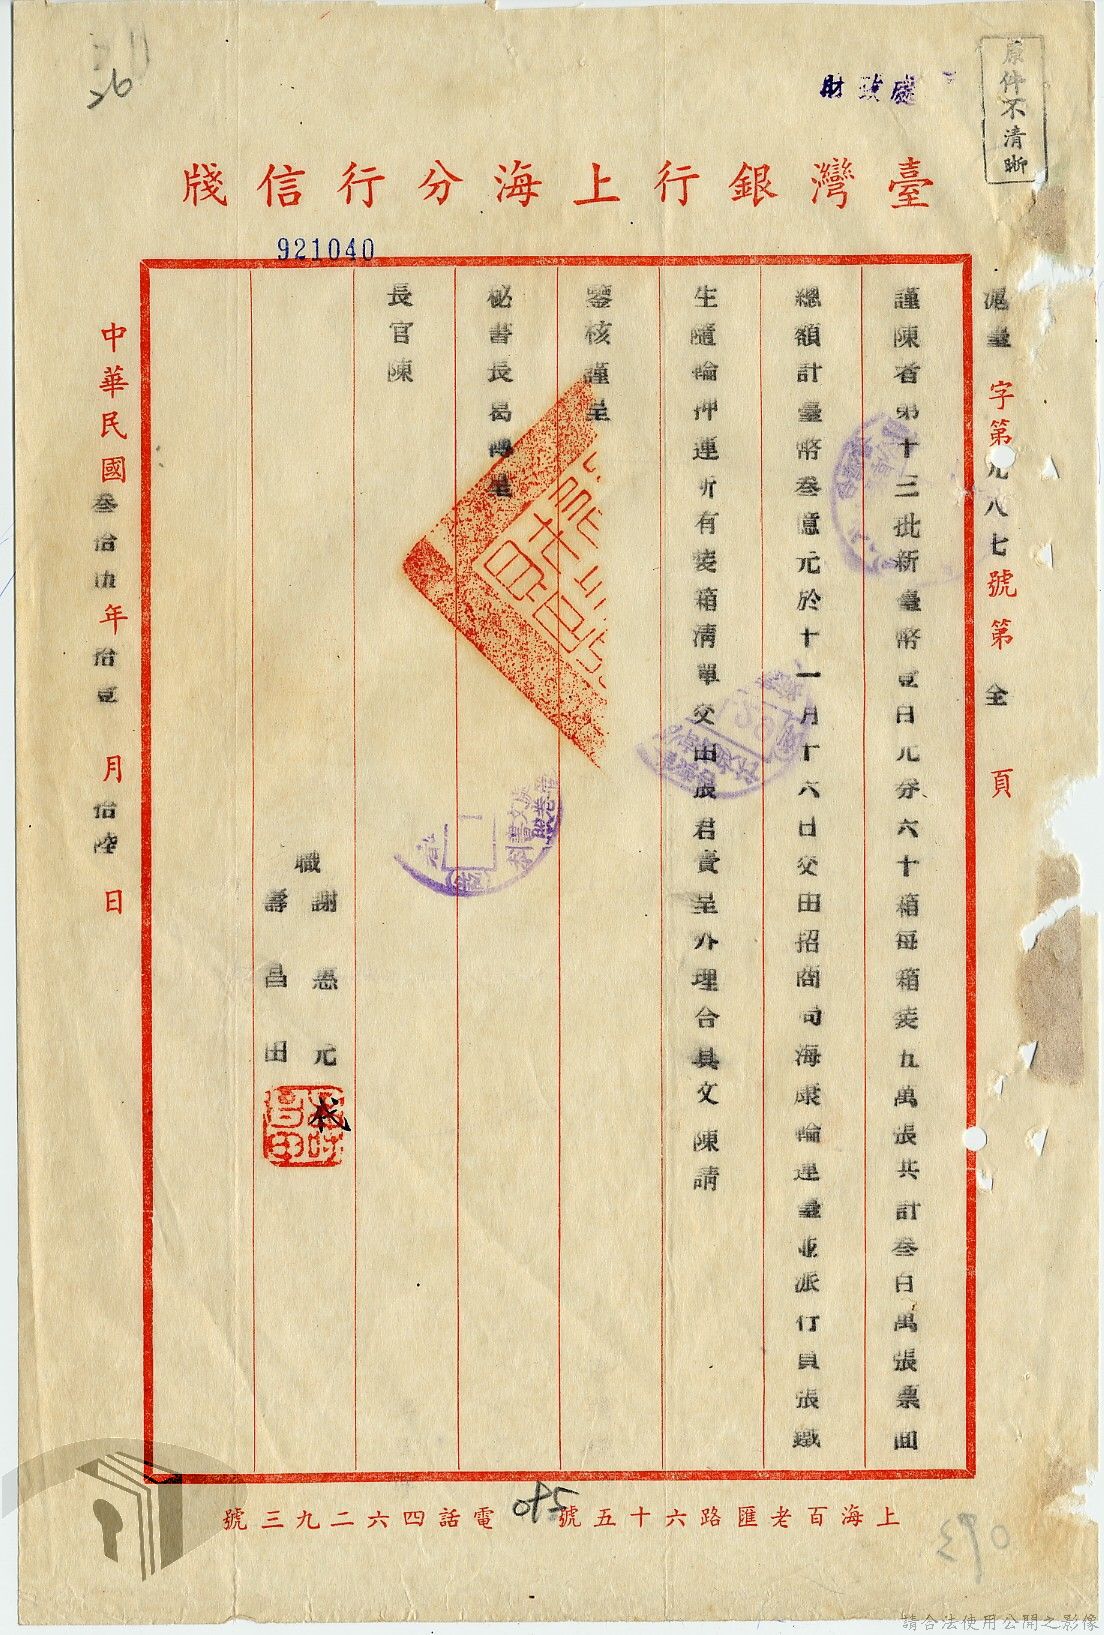 原件不清晰
財政處
臺灣銀行上海分行信牋
921040
滬臺字第九八七號第全頁
謹陳者第十三批新臺幣壹百元券六十箱每箱裝五萬張共計叁百萬張票面
總額計臺幣叁億元於十一月十六日交由招商局海康輪運臺並派行員張鐵
生隨輪押運所有裝箱清單交由張君賫呈外理合具文陳請
鑒核謹呈
秘書長葛轉呈
長官陳
職謝惠元
壽昌田
代
中華民國叁拾伍年拾壹月拾陸日
上海百老匯路六十五號 電話四六二九三號
請合法使用公開之影像